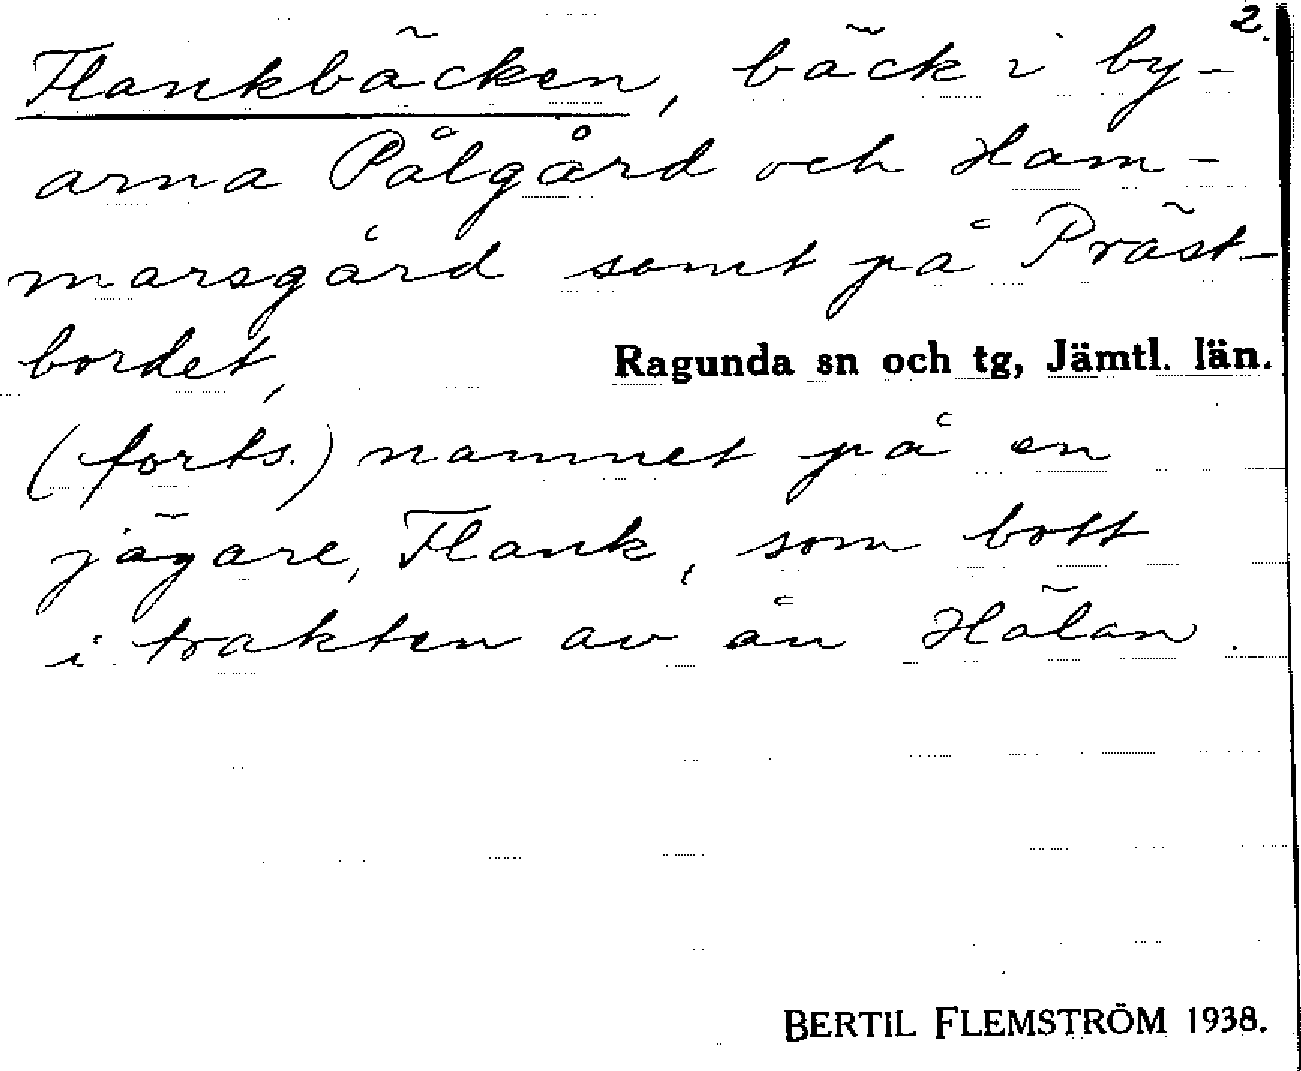 2.
Flankbäcken, bäck i by-
arna Pålgård och Ham-
marsgård samt på Präst-
bordet,
Ragunda sn och tg, Jämtl. län.
(forts.) namnet på en
jägare, Flank, som bott
i trakten av ån Hälan.
BERTIL FLEMSTRÖM 1938.